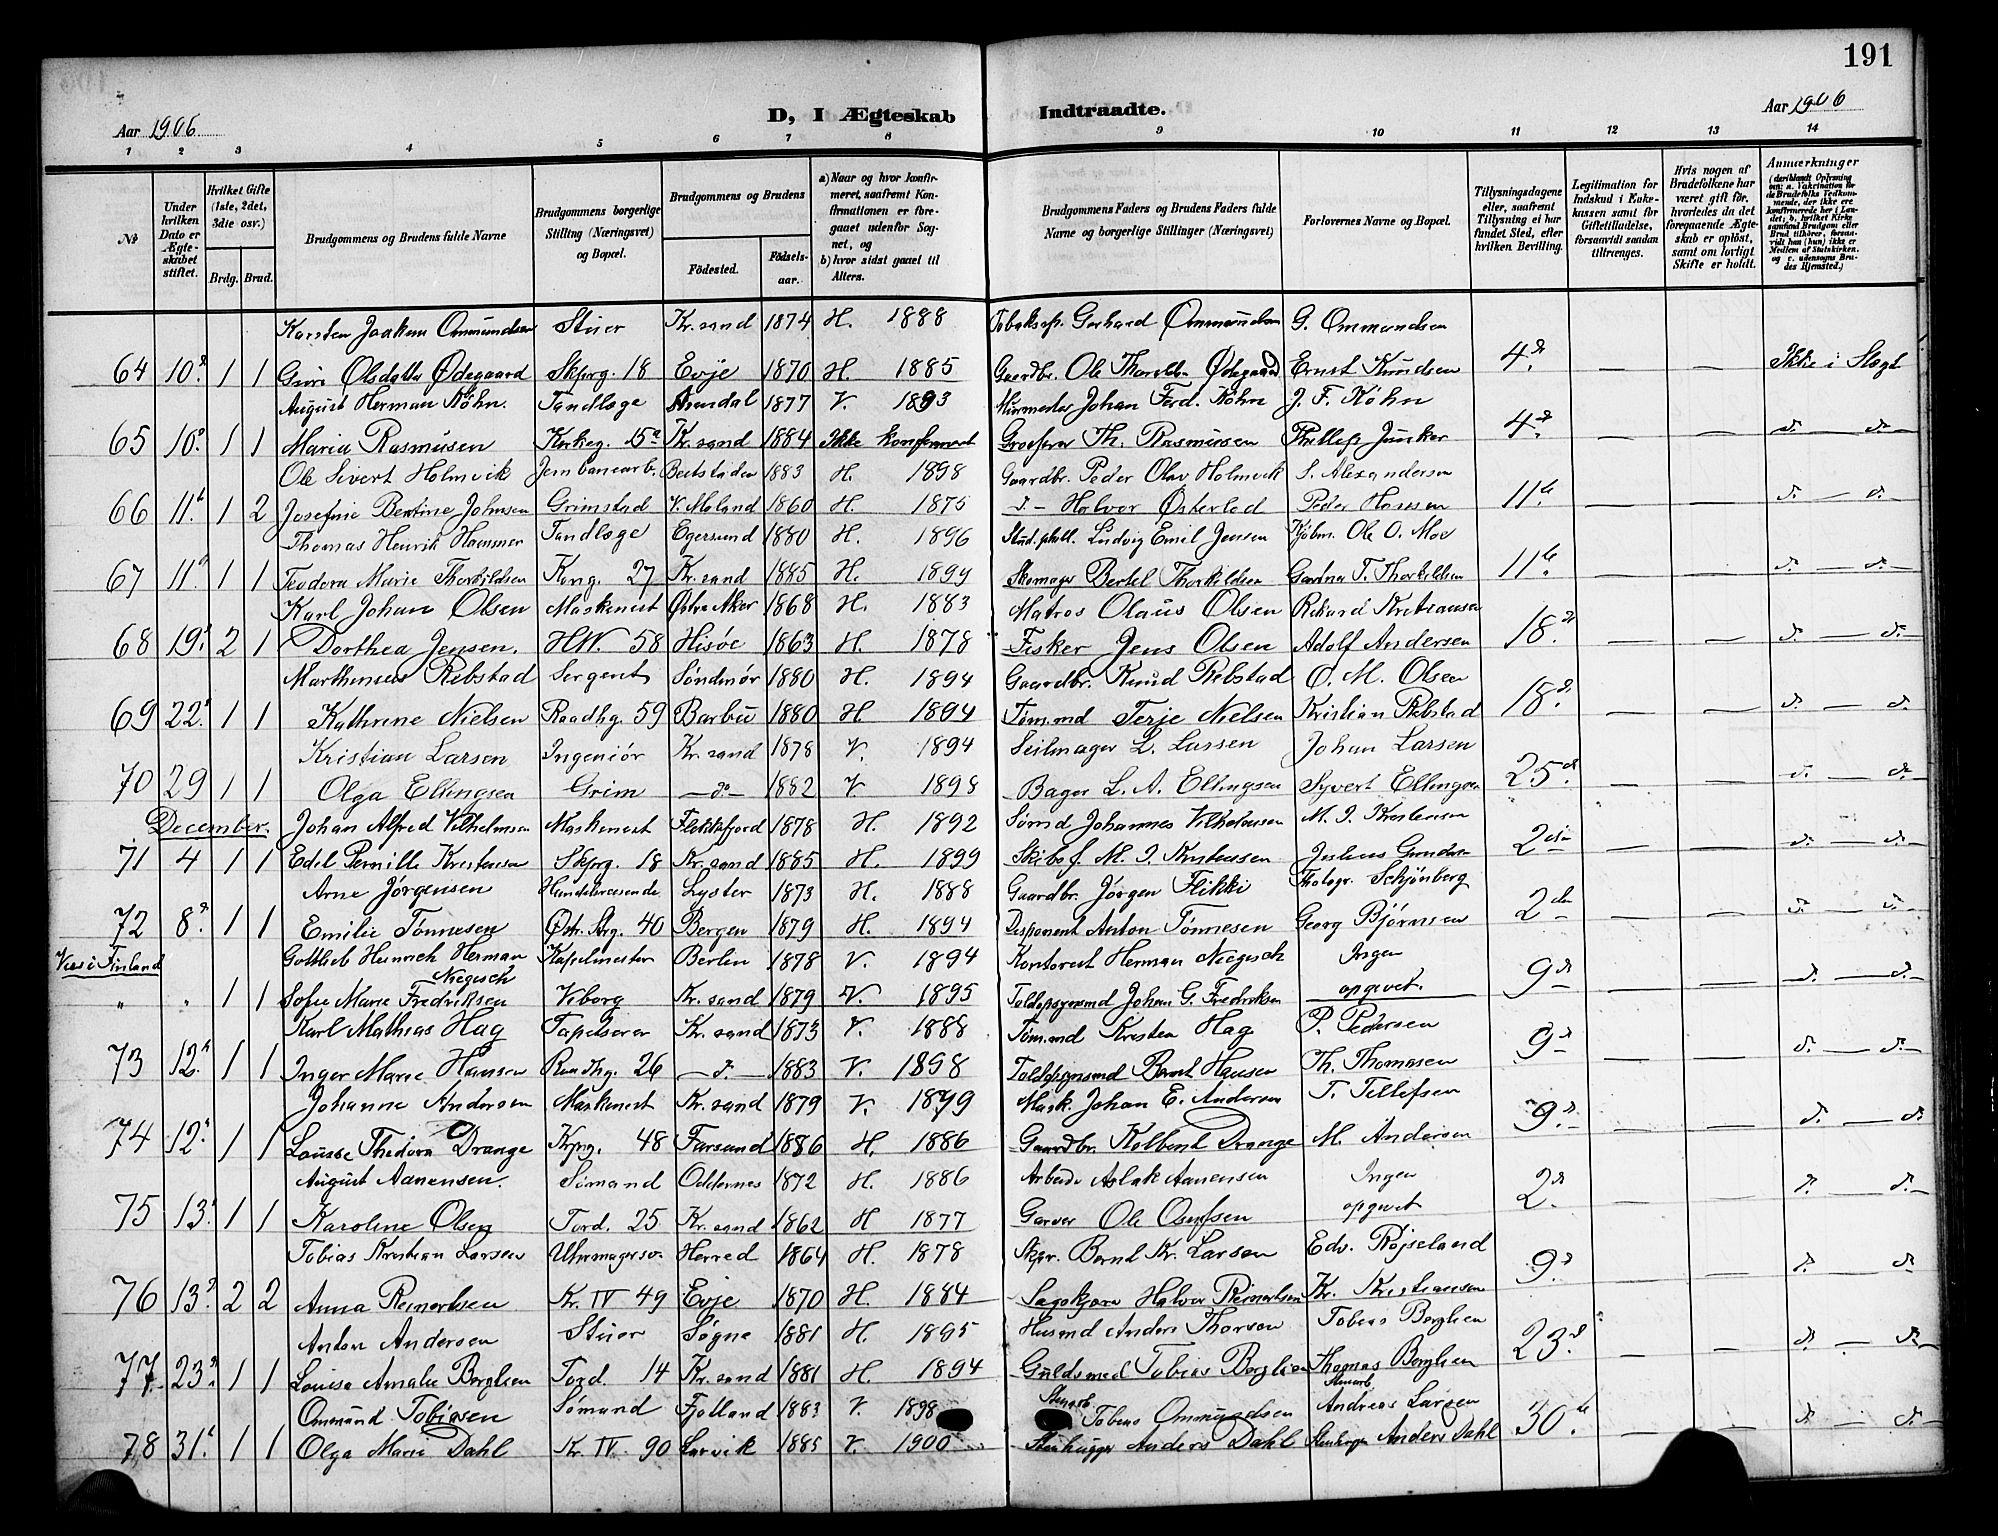 191
Aar 1906.
D, I Ægteskab Indtraadte.
Aar 1906
1 2 3 4 5 6 7 8 9 10 11 12 13 14
No
Under hvilken Dato er Ægteskabet stiftet.
Hvilket Gifte (1ste, 2det, 3die osv.)
Brdg. Brud.
Brudgommens og Brudens fulde Navne
Brudgommens borgerlige Stilling (Næringsvei) og Bopæl.
Brudgommens og Brudens
Fødested.
Fødselsaar.
a) Naar og hvor konfirmeret, saafremt Konfirmationen er foregaaet udenfor Sognet, og
b) hvor sidst gaaet til Alters.
Brudgommens Faders og Brudens Faders fulde Navne og borgerlige Stillinger (Næringsvei)
Forlovernes Navne og Bopæl.
Tillysningsdagene eller, saafremt Tillysning ei har fundet Sted, efter hvilken Bevilling.
Legitimation for Indskud i Enkekassen samt for Giftetilladelse, forsaavidt saadan tiltrænges.
Hvis nogen af Brudefolkene har været gift før, hvorledes da det foregaaende Ægteskab er opløst, samt om lovligt Skifte er holdt.
Anmærkninger
(deriblandt Oplysning om: a. Vakcination for de Brudefolks Vedkommende, der ikke ere konfirmerede her i Landet; b. hvilket Kirkesamfund Brudgom eller Brud tilhører, forsaavidt han (hun) ikke er Medlem af Statskirken. og c. udensogns Brudes Hjemsted.)
Karsten Joakim Ommundsen Stuer Kr.sand 1874 H. 1888 Gerhard Ommundsen G. Ommundsen
64 10. 1 1 Guri Olsdatter Ødegaard Skjprg. 18 Evje 1870 H. 1885 Gaardbr. Ole Ødegaard Ernst Knudsen 4. Ikke i Slægt
August Herman Köhn. Tandlæge Arendal 1877 V. 1893 Murmester Johan Ferd. Köhn J. F. Köhn
65 10. 1 1 Maria Rasmusen Kirkeg. 15 Kr.sand 1884 Ikke konfirmert Th. Rasmusen Phillip Junker 4. — — d. — d.
Ole Sivert Holmvik Jernbanearb. Beitstaden 1883 H. 1898 Gaardbr. Peder Olav Holmvik S. Alexandersen
66 11. 1 2 Josefine Bertine Johnsen Grimstad V. Moland 1860 H. 1875 d— Halvor Østerlod Peder Hansen 11. — — d. — d.
Thomas Henrik Hammer Tandlæge Egersund 1880 H. 1896 Stud. phil. Ludvig Emil Jensen Kjøbm. Ole O. Moe
67 11. 1 1 Teodora Marie Thorkildsen Kong. 27 Kr.sand 1885 H. 1899 Skomager Bertel Thorkildsen Gartner T. Thorkildsen 11. — — d. — d.
Karl Johan Olsen Maskenist Østre Aker 1868 H. 1883 Matros Olaus Olsen Rikard Kristiansen
68 19. 2 1 Dorthea Jensen. H.W. 58 Hisøe 1863 H. 1878 Fisker Jens Olsen Adolf Andersen 18. — — d. — d.
Marthinius Rebstad Sergent Søndmør 1880 H. 1894 Gaardbr. Knud Rebstad O. M. Olsen
69 22. 1 1 Kathrine Nielsen Raadhg. 59 Barbu 1880 H. 1894 Tømmd Terje Nielsen Kristian Rebstad 18. — — d. — d.
Kristian Larsen Ingeniør Kr.sand 1878 V. 1894 Seilmager L. Larsen Johan Larsen
70 29 1 1 Olga Ellingsen Grim —do— 1882 V 1898 Bager L. A. Ellingsen Syvert Ellingsen 25. — — d. — d.
December. Johan Alfred Vilhelmsen Maskenist Flekkefjord 1878 H. 1892 Sømd Johannes Vilhelmsen M. J. Kristensen
71 4 1 1 Edel Pernille Kristensen Skjprg. 18 Kr.sand 1885 H. 1899 Skibsf. M. J. Kristensen 2 — — d. — d.
Arne Jørgensen Handelsreisende Lyster 1873 H. 1888 Gaardbr. Jørgen Flikki Photogr. Schjønberg
72 8. 1 1 Emilie Tønnesen Øst. Strg. 40 Bergen 1879 H. 1894 Disponent Anton Tønnesen Georg Bjørnsen 2 — — d. — d.
Viet i Finland Gottlieb Heinrich Herman Niegisch Kapelmester Berlin 1878 V. 1894 Kontorist Herman Niegisch Ingen
" " 1 1 Sofie Marie Fredriksen Viborg Kr.sand 1879 V. 1895 Toldopsynsmd Johan G. Fredriksen opgivet. 9 — — d. — d.
Karl Mathias Hag Tapetserer Kr.sand 1873 V. 1888 Tømmd Kristen Hag P. Pedersen
73 12. 1 1 Inger Marie Hansen Raadhg. 26 —d.— 1883 V. 1898 Toldopsynsmd Bernt Hansen Th. Thomasen 9 — — d. — d.
Johanne Andersen Maskenist Kr.sand 1879 V. 1899 Mask. Johan E. Andersen T. Tellefsen
74 12. 1 1 Louise Thedora Drange Kprg. 48 Farsund 1886 H. 1886 Gaardbr. Kolbent Drange M. Andersen 9. — — d. — d.
August Aanensen. Sømand Oddernes 1872 H. 1886 Arbeider Aslak Aanensen Ingen
75 13. 1 1 Karoline Olsen Tord. 25 Kr.sand 1862 H 1877 Garver Ole Osufsen opgivet 2. — — d. — d.
Tobias Kristian Larsen Uhrmagersv. Herred 1864 H. 1878 Skpr. Bernt Kr. Larsen Edv. Røjseland
76 13. 2 2 Anna Reinertsen Kr. IV 49 Evje 1870 H. 1884 Halvor Reinertsen Kr. Kristiansen 9. — — d. — d.
Anton Andersen Stuer Søgne 1881 H. 1895 Husmd Anders Thorsen Tobias Berglien
77. 23. 1 1 Louise Amalie Berglien Tord. 14 Kr.sand 1881 H. 1894 Guldsmed Tobias Berglien Thomas Berglien 23. — — d. — d.
Ommund Tobiasen Sømand Fjotland 1883 V. 1898 Stenarb Tobias Ommundsen Stenarb Andreas Larsen
78 31. 1 1 Olga Marie Dahl Kr. IV. 90 Larvik 1885 V. 1900 Stenhugger Anders Dahl Stenhugger Anders Dahl 30. — — d. — d.